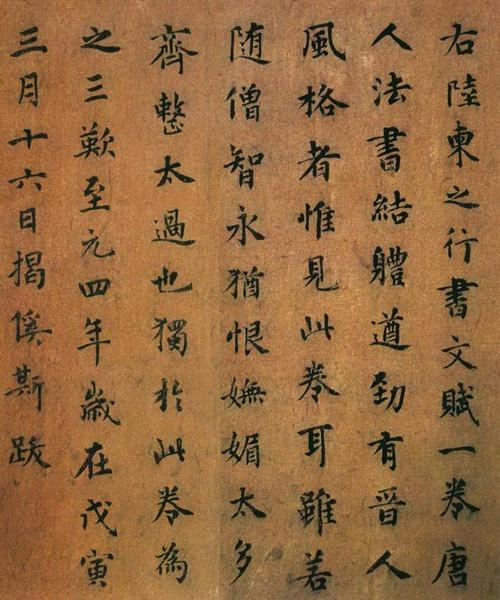 右陸柬之行書文賦一卷唐
人法書結軆遒勁有晋人
風格者惟見此卷耳雖若
隨僧智永猶恨嫵媚太多
齊整太過也獨於此卷為
之三歎至元四年歲在戊寅
三月十六日揭傒斯跋